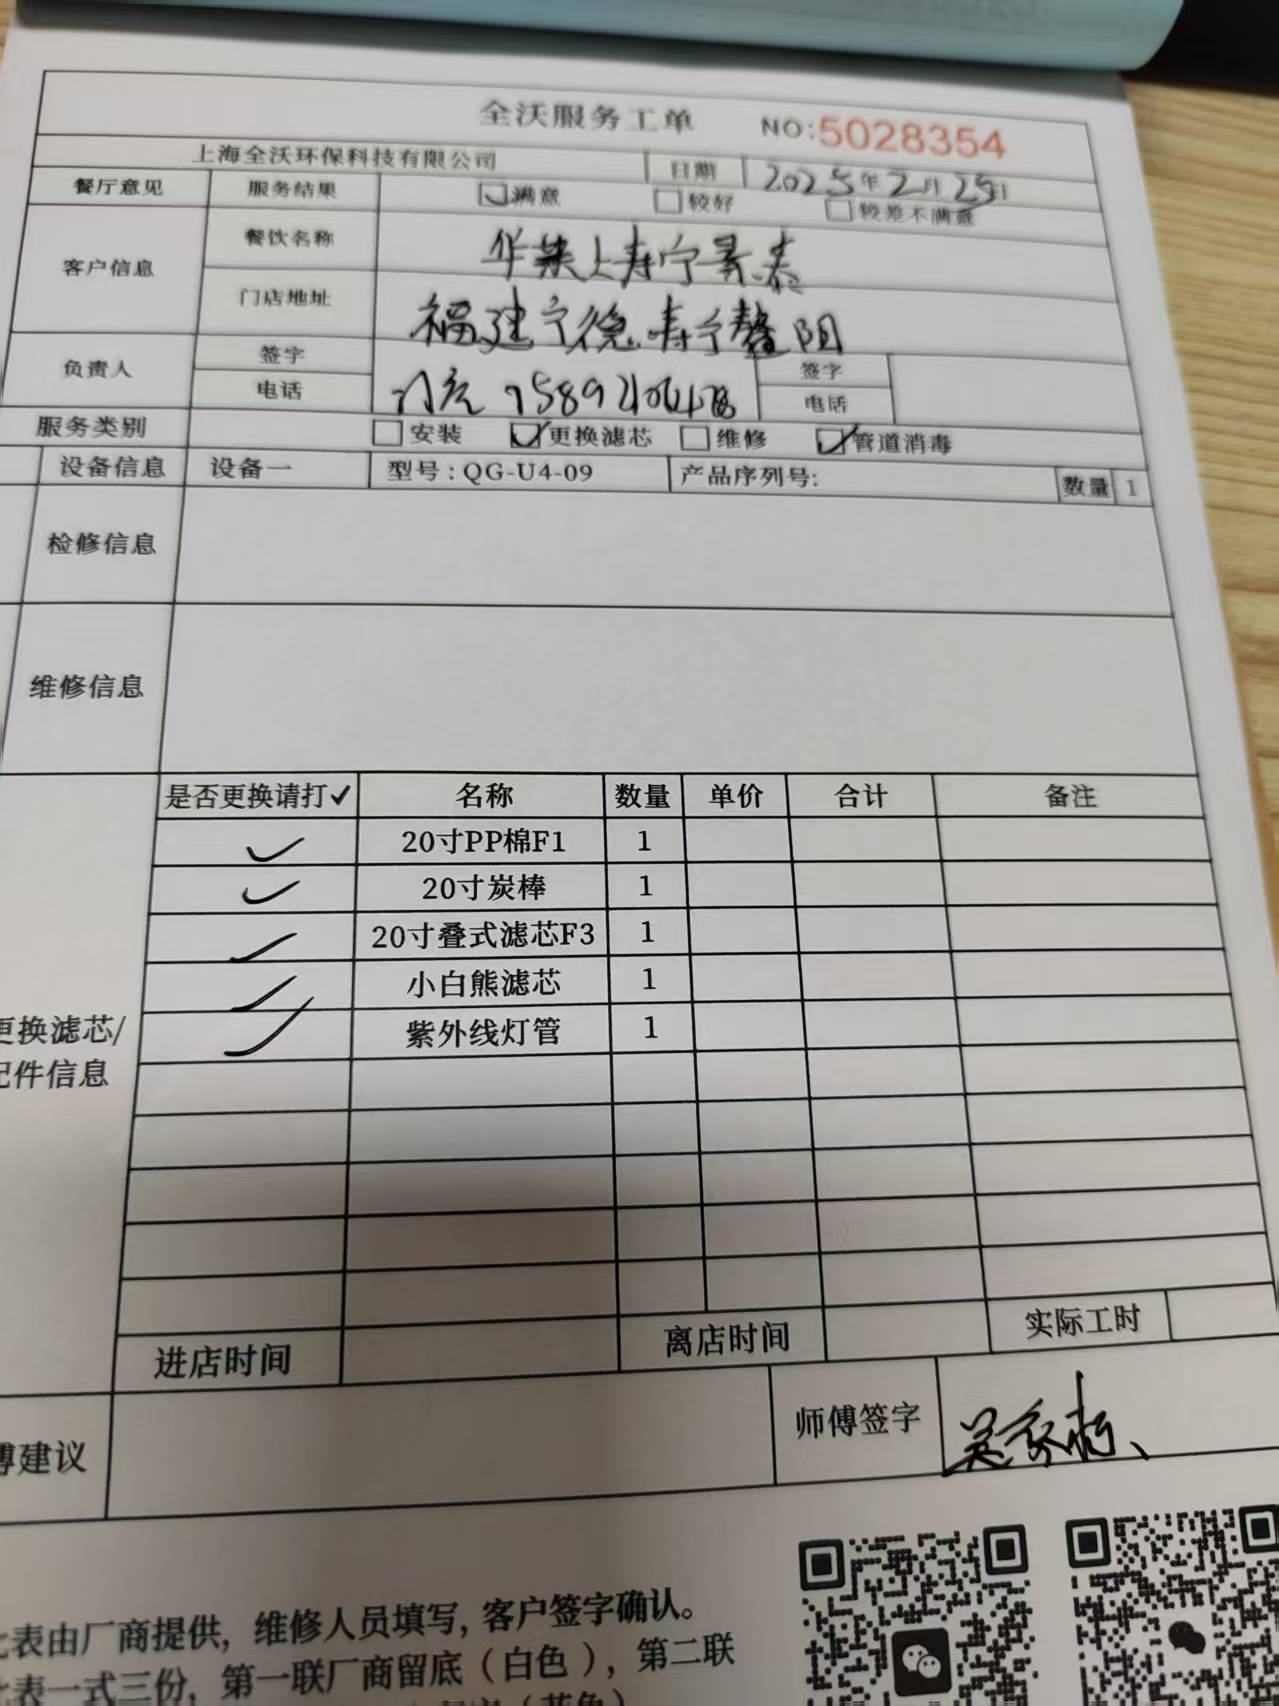 全沃服务工单 NO:5028354
上海全沃环保科技有限公司 日期 2025年2月25日
餐厅意见 服务结果 满意 较好 较差不满意
客户信息 餐饮名称 华莱士寿宁景泰
门店地址 福建宁德寿宁鳌阳
负责人 签字 签字
电话 门店 电话
服务类别 安装 更换滤芯 维修 管道消毒
设备信息 设备一 型号:QG-U4-09 产品序列号: 数量 1
检修信息
维修信息
是否更换请打✓ 名称 数量 单价 合计 备注
✓ 20寸PP棉F1 1
✓ 20寸炭棒 1
✓ 20寸叠式滤芯F3 1
✓ 小白熊滤芯 1
✓ 紫外线灯管 1
更换滤芯/
配件信息
进店时间 离店时间 实际工时
傅建议 师傅签字
此表由厂商提供,维修人员填写,客户签字确认。
此表一式三份,第一联厂商留底(白色),第二联